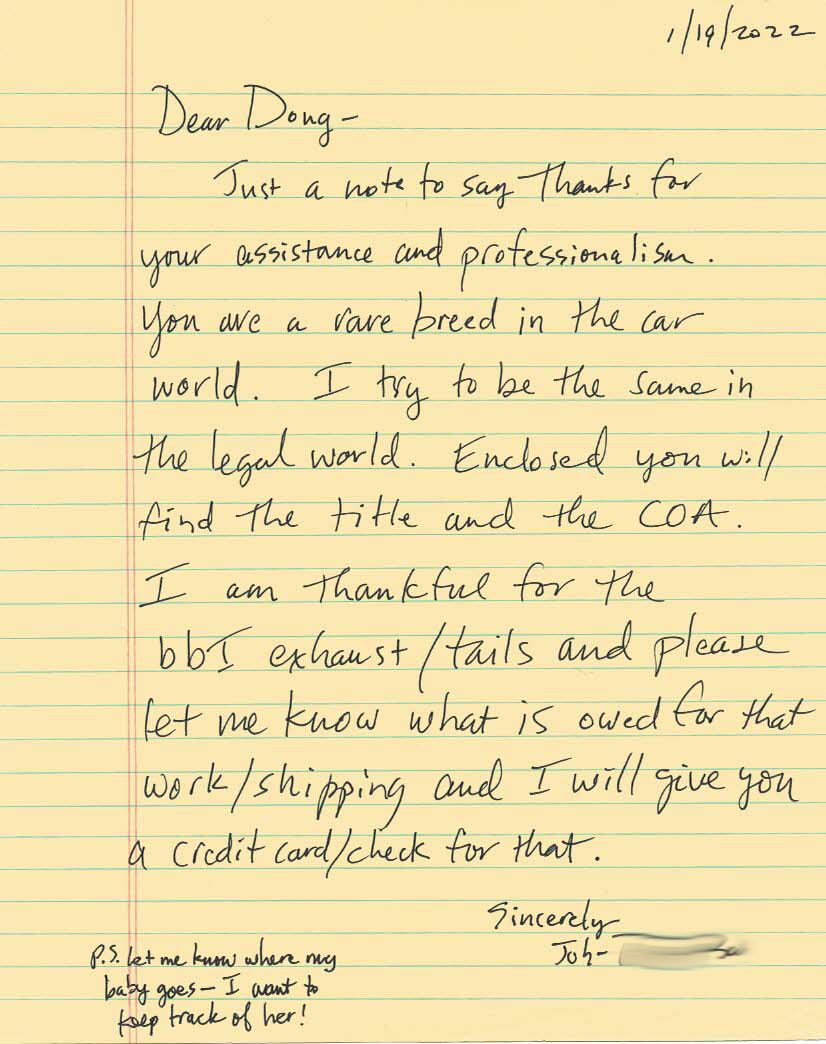 1/19/2022
Dear Doug-
Just a note to say Thanks for
your assistance and professionalism.
You are a rare breed in the car
world. I try to be the same in
the legal world. Enclosed you will
find the title and the COA.
I am thankful for the
bbI exhaust/tails and please
let me know what is owed for that
work/shipping and I will give you
a credit card/check for that.
Sincerely
P.S. let me know where my
baby goes- I want to
keep track of her!